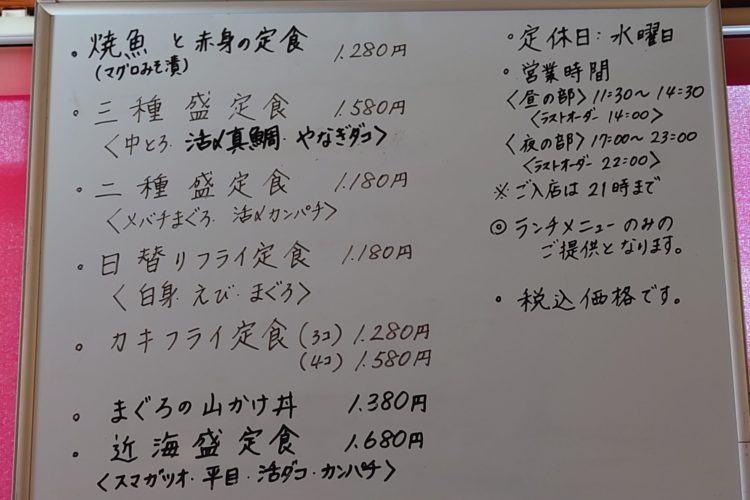 ・焼魚と赤身の定食 1.280円
(マグロみそ漬)
・三種盛定食 1.580円
〈中とろ・活〆真鯛・やなぎダコ〉
・二種盛定食 1.180円
〈メバチまぐろ・活〆カンパチ〉
・日替りフライ定食 1.180円
〈白身・えび・まぐろ〉
・カキフライ定食(3コ) 1.280円
(4コ) 1.580円
・まぐろの山かけ丼 1.380円
・近海盛定食 1.680円
〈スマガツオ・平目・活ダコ・カンパチ〉
・定休日:水曜日
・営業時間
〈昼の部〉11:30〜14:30
〈ラストオーダー 14:00〉
〈夜の部〉17:00〜23:00
〈ラストオーダー 22:00〉
※ご入店は21時まで
◎ランチメニューのみの
ご提供となります。
・税込価格です。